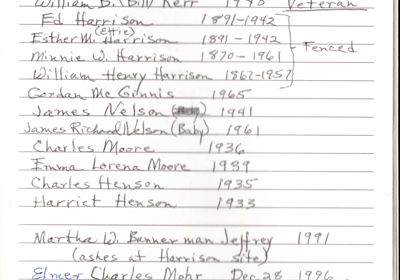 William B. (Bill) Kerr 1990 Veteran
Ed Harrison 1891-1942
Esther M. (Effie) Harrison 1891-1942
Minnie W. Harrison 1870-1961 Fenced
William Henry Harrison 1862-1957
Gordan McGinnis 1965
James Nelson 1941
James Richard Nelson (Baby) 1961
Charles Moore 1936
Emma Lorena Moore 1939
Charles Henson 1935
Harriet Henson 1933
Martha W. Bennerman Jeffrey 1991
(ashes at Harrison site)
Elmer Charles Mohr Dec 28 1996